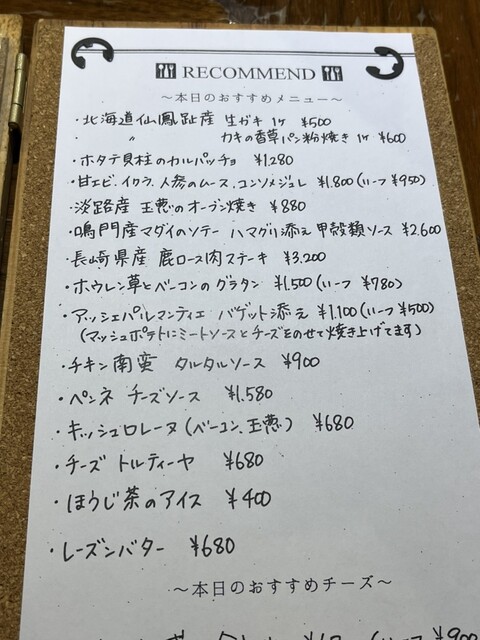 RECOMMEND
～本日のおすすめメニュー～
・北海道仙鳳趾産 生ガキ 1ケ ¥500
・ 〃 カキの香草パン粉焼き 1ケ ¥600
・ホタテ貝柱のカルパッチョ ¥1.280
・甘エビ、イクラ、人参のムース、コンソメジュレ ¥1.800(ハーフ ¥950)
・淡路産 玉葱のオーブン焼き ¥880
・鳴門産マダイのソテー ハマグリ添え 甲殻類ソース ¥2.600
・長崎県産 鹿ロース肉ステーキ ¥3.200
・ホウレン草とベーコンのグラタン ¥1.500(ハーフ ¥780)
・アッシェパルマンティエ バゲット添え ¥1.100(ハーフ ¥500)
(マッシュポテトにミートソースとチーズをのせて焼き上げてます)
・チキン南蛮 タルタルソース ¥900
・ペンネ チーズソース ¥1.580
・キッシュロレーヌ(ベーコン、玉葱) ¥680
・チーズ トルティーヤ ¥680
・ほうじ茶のアイス ¥400
・レーズンバター ¥680
～本日のおすすめチーズ～